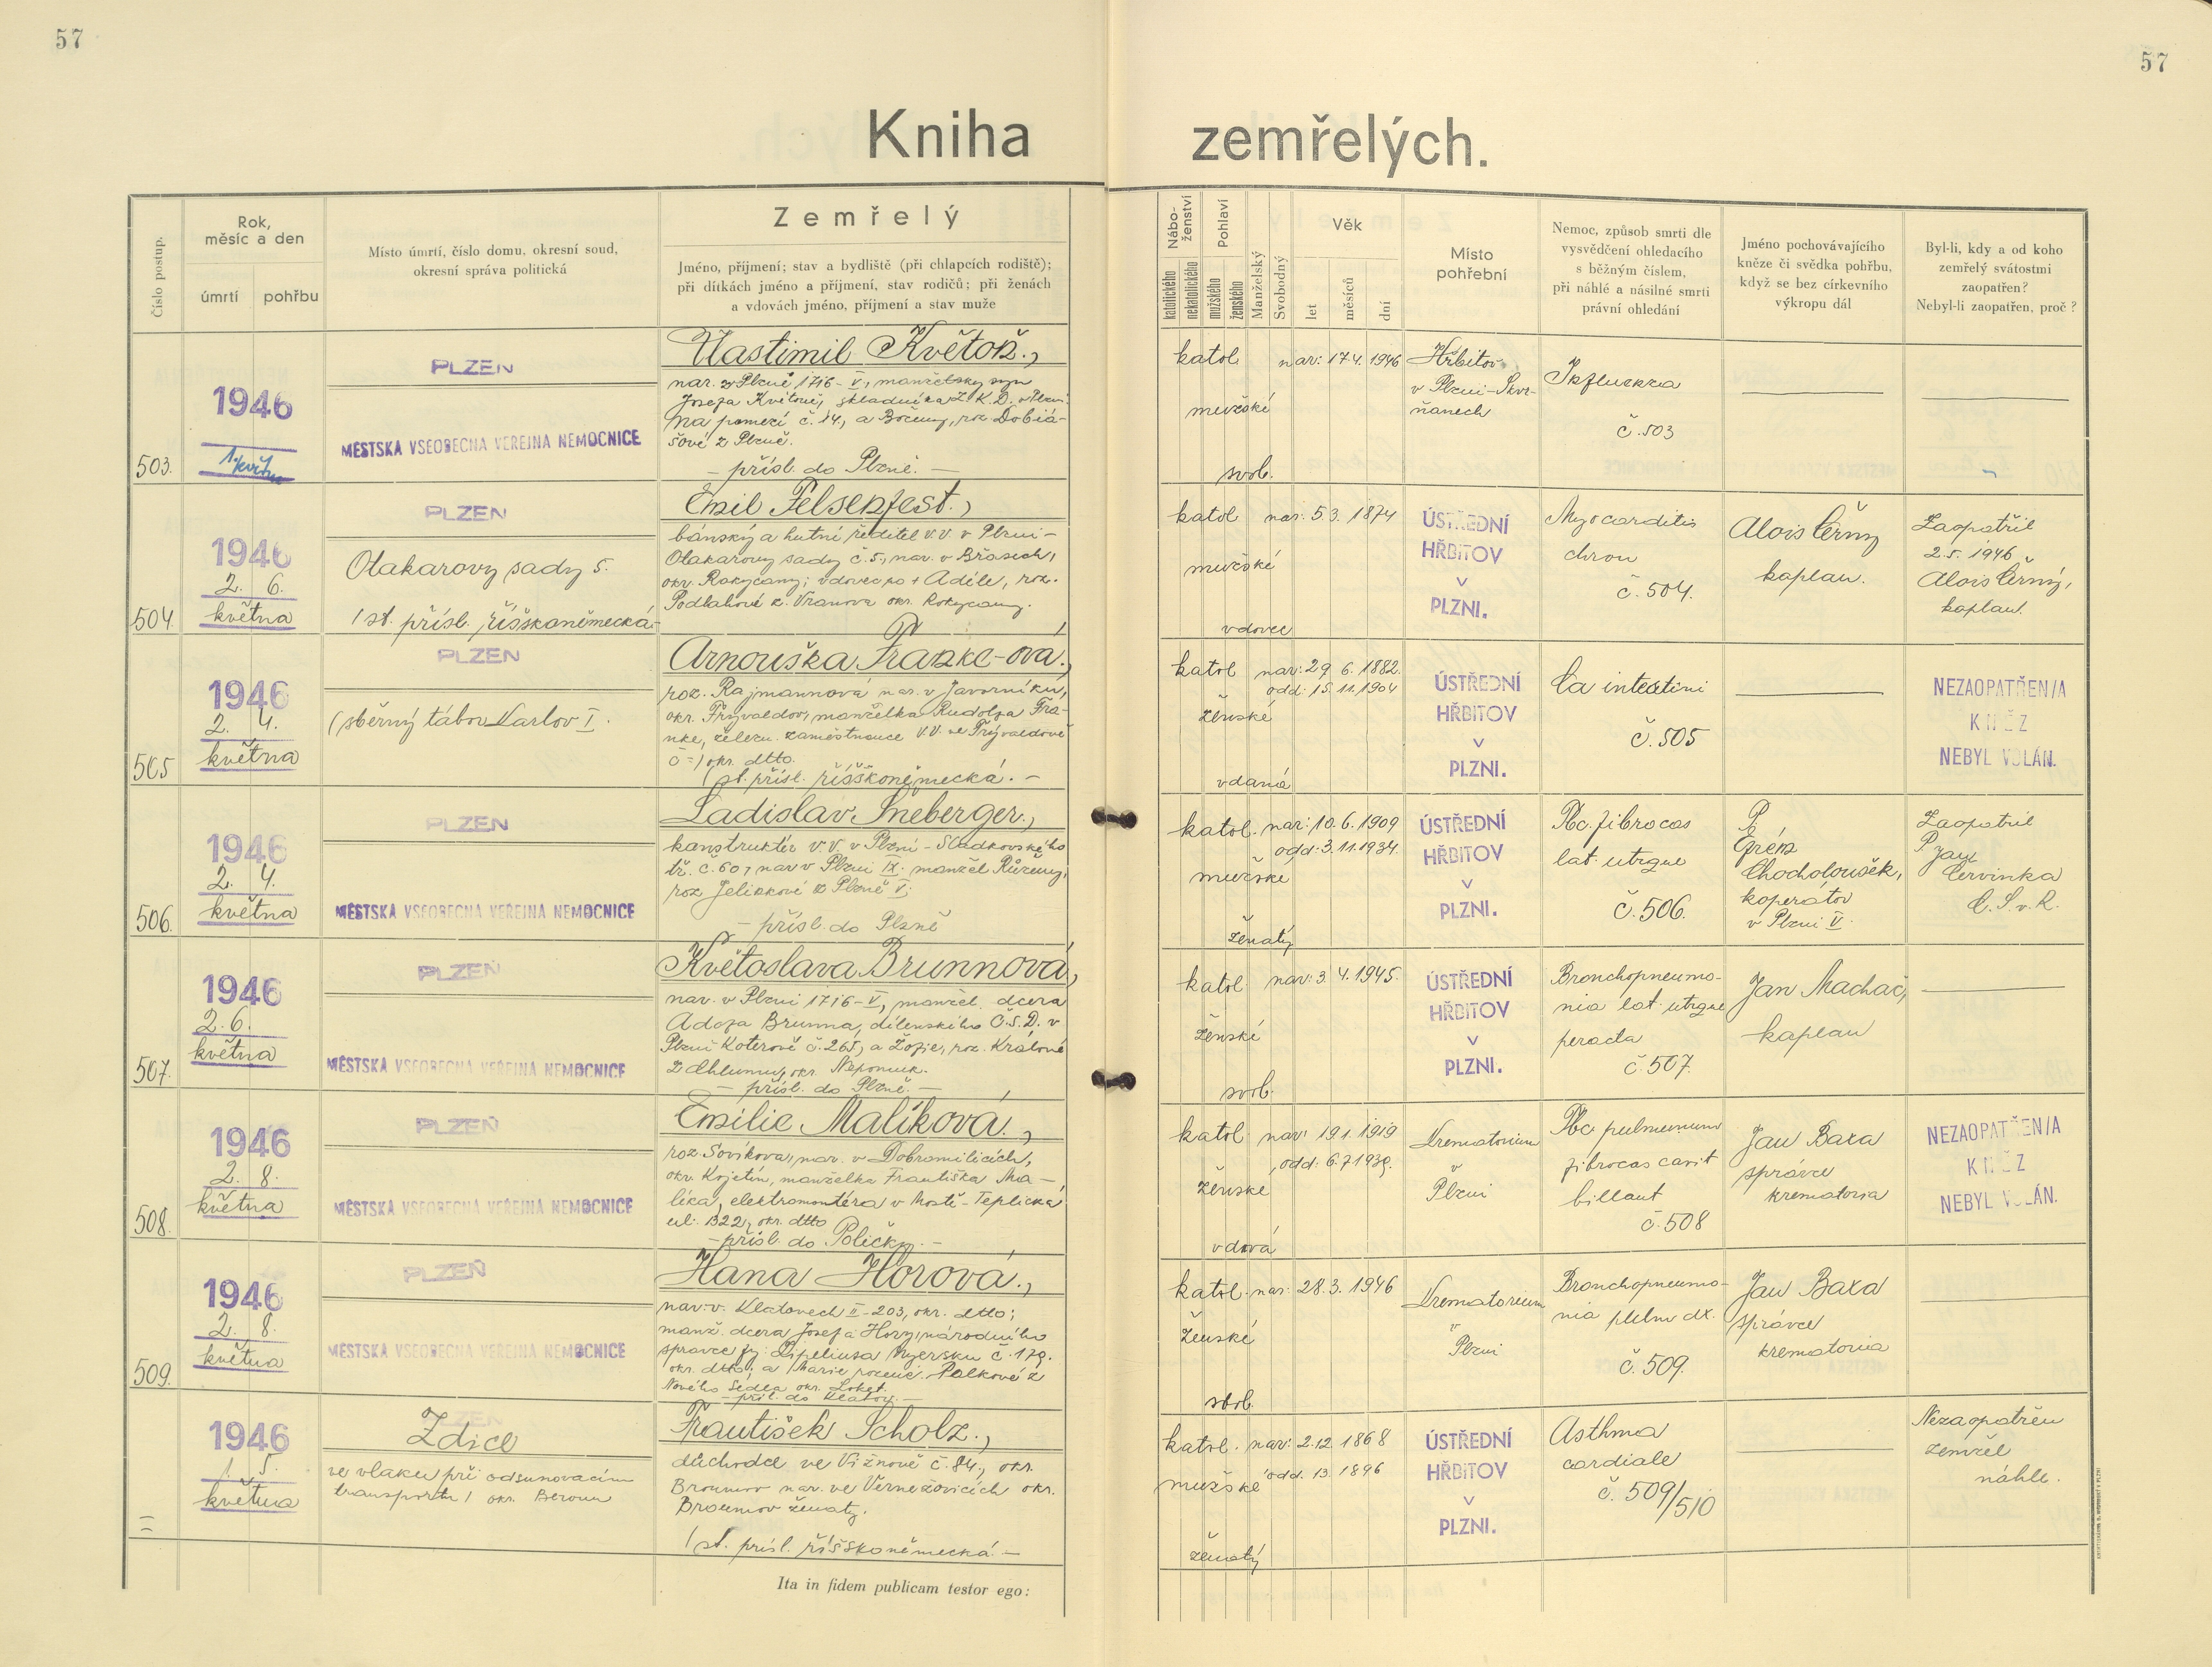 57
57
Kniha zemřelých.
Číslo postup.
Rok,
měsíc a den
úmrtí
pohřbu
Místo úmrtí, číslo domu, okresní soud,
okresní správa politická
Zemřelý
Jméno, příjmení; stav a bydliště (při chlapcích rodiště);
při dítkách jméno a příjmení, stav rodičů; při ženách
a vdovách jméno, příjmení a stav muže
Nábo-
ženství
katolického
nekatolického
Pohlaví
mužského
ženského
Manželský
Svobodný
Věk
let
měsíců
dní
Místo
pohřební
Nemoc, způsob smrti dle
vysvědčení ohledacího
s běžným číslem,
při náhlé a násilné smrti
právní ohledání
Jméno pochovávajícího
kněze či svědka pohřbu,
když se bez církevního
výkropu dál
Byl-li, kdy a od koho
zemřelý svátostmi
zaopatřen?
Nebyl-li zaopatřen, proč?
503.
1946
1. květn
PLZEN
MĚSTSKA VSEOBECNA VEREJNA NEMOCNICE
Vlastimil Květoň.,
nar. v Plzni 1716-V., manželský syn
Josefa Květoně, skladníka Z.K.D. v Plzni
Na pomezí č. 14, a Boženy, roz. Dobiá-
šové z Plzně.
– přísl. do Plzně. –
katol.
mužské
svob.
nar: 17.4. 1946
Hřbitov
v Plzni-Skvr-
ňanech
Influenza
č. 503
504
1946
2. 6.
května
PLZEN
Otakarovy sady 5.
/st. přísl. říšskoněmecká.
Emil Felsenfest.,
bánský a hutní ředitel v.v. v Plzni-
Otakarovy sady č. 5., nar. v Břasech,
okr. Rokycany; vdovec po + Adéle, roz.
Podlahové z Vranova okr. Rokycany.
katol
mužské
vdovec
nar: 5.3. 1874
ÚSTŘEDNÍ
HŘBITOV
V
PLZNI.
Myocarditis
chron
č. 504.
Alois Černý
kaplan.
Zaopatřil
2.5. 1946
Alois Černý,
kaplan.
505
1946
2. 4.
května
PLZEN
(sběrný tábor Karlov I.
Arnouška Franke-ová.,
roz. Rajmannová nar. v Javorníku,
okr. Frývaldov, manželka Rudolfa Fra-
nke, železn. zaměstnance v.v. ve Frývaldově
č –/ okr. dtto.
(st. přísl. říšskoněmecká. –
katol
ženské
vdaná
nar: 29. 6. 1882.
odd: 15. 11. 1904
ÚSTŘEDNÍ
HŘBITOV
V
PLZNI.
Ca intestini
č. 505
NEZAOPATŘEN/A
KNĚZ
NEBYL VOLÁN.
506.
1946
2. 4.
května
PLZEN
MĚSTSKA VSEOBECNA VEREJNA NEMOCNICE
Ladislav Šneberger.,
konstruktér v.v. v Plzni - Sladkovského
tř. č. 60, nar v Plzni IX; manžel Růženy,
roz Jelínkové z Plzně V;
– přísl. do Plzně
katol.
mužské
ženatý
nar: 10.6. 1909
odd: 3.11.1934.
ÚSTŘEDNÍ
HŘBITOV
V
PLZNI.
Tbc. fibrocas
lat. utrque
č. 506.
P.
Chocholoušek,
koperátor
v Plzni V.
Zaopatřil
P. Jan
Červinka
C.S.s.R.
507.
1946
2. 6.
května
PLZEŇ
MĚSTSKA VSEOBECNA VEREJNA NEMOCNICE
Květoslava Brunnová,
nar. v Plzni 1716-V., manžel. dcera
Adofa Brunna, dílenského Č.S.D. v
Plzni Koterově č. 265, a Žofie, roz. Králové
z Chlumu, okr. Nepomuk.
– přísl. do Plzně. –
katol.
ženské
svob.
nar: 3. 4. 1945.
ÚSTŘEDNÍ
HŘBITOV
V
PLZNI.
Bronchopneumo-
nia lat. utrque
peracta
č. 507.
Jan Machač,
kaplan
508.
1946
2. 8.
května
PLZEŇ
MĚSTSKA VSEOBECNA VEREJNA NEMOCNICE
Emilie Malíková.,
roz. Sovíkova, nar. v Dobromilicích,
okr. Kojetín, manželka Františka Ma-
líka, elektromontéra v Mostě - Teplická
ul. 1322, okr. dtto
– přísl. do Poličky. –
katol.
ženské
vdová
nar: 19.1. 1919
odd: 6.7.1939.
Krematorium
v
Plzni
Tbc pulmunum
fibrocas cavit
billaut
č. 508
Jan Baxa
správce
krematoria
NEZAOPATŘEN/A
KNĚZ
NEBYL VOLÁN.
509.
1946
2. 8.
května
PLZEŇ
MĚSTSKA VSEOBECNA VEREJNA NEMOCNICE
Hana Horová.,
nar. v. Klatovech II-203, okr. dtto;
manž. dcera Josefa Hory, národního
správce fy. Nyersku č. 179.
okr. dtto; a Marie rozené Palkové z
Nového Sedla okr. Loket.
– přísl. do Klatov. –
katol.
ženské
svob.
nar: 28.3. 1946
Krematoreum
v
Plzni
Bronchopneumo-
nia pulm dx.
č. 509.
Jan Baxa
správce
krematoria
=
1946
1. 5.
května
PLZEŇ
Zdice
ve vlaku při odsunovacím
transportu / okr. Beroun
František Scholz.,
důchodce ve Vižnově č. 84., okr.
Broumov nar. ve Verněřovicích okr.
Broumov ženatý.
/st. přísl. říšskoněmecká. –
katol.
mužské
ženatý
nar: 2.12. 1868
odd. 13. 1896
ÚSTŘEDNÍ
HŘBITOV
V
PLZNI.
Asthma
cardiale
č. 509/510
Nezaopatřen
zemřel
náhle.
Ita in fidem publicam testor ego: